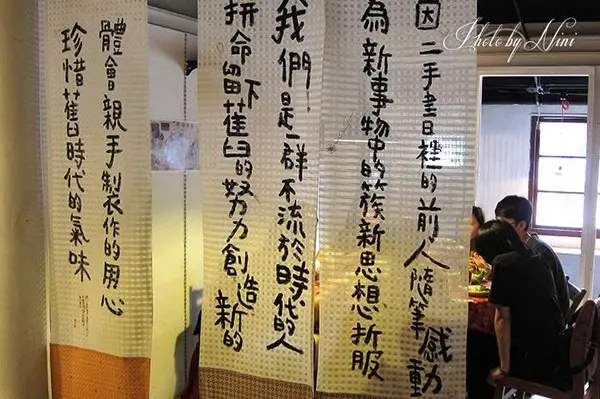 因二手書裡的前人隨筆感動
為新事物中的簇新思想折服
我們是一群不流於時代的人
拼命留下舊的努力創造新的
體會親手製作的用心
珍惜舊時代的氣味
Photo by Nini